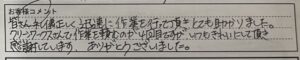 お客様コメント
皆さん礼儀正しく迅速に作業を行って頂きとても助かりました。
クリーンワークスさんで作業を頼むのが4回目ですが、いつもきれいにして頂き
感謝しています。ありがとうございました。